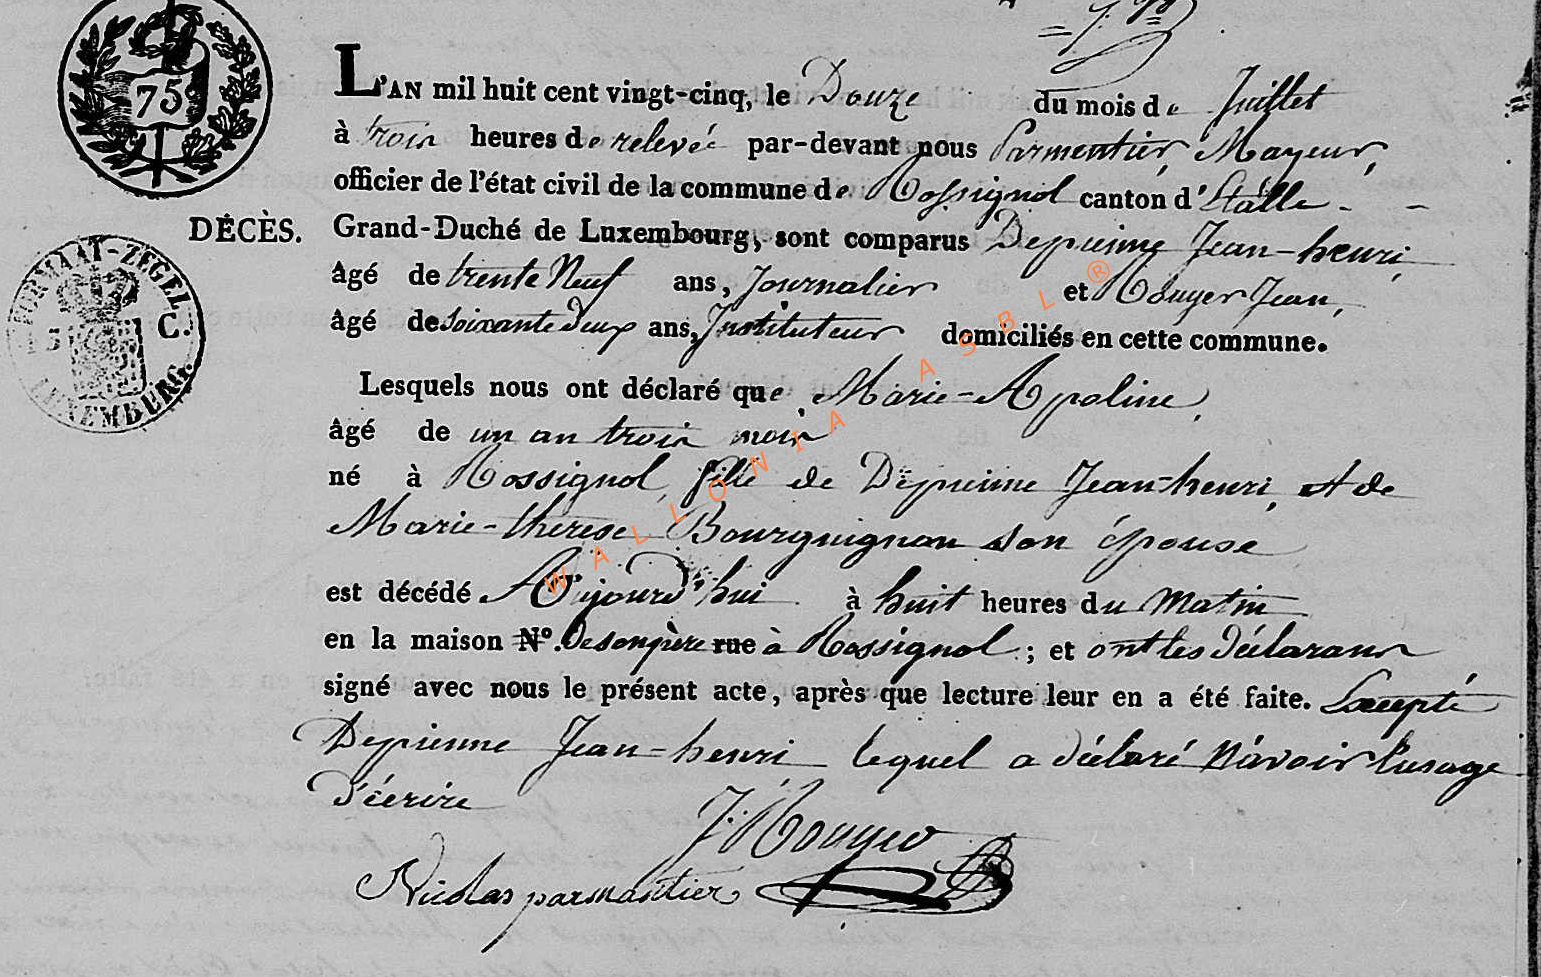 75
L'AN mil huit cent vingt-cinq, le Douze du mois de Juillet
à trois heures de relevée par-devant nous Parmentier, Mayeur,
officier de l'état civil de la commune de Rossignol canton d'Etalle - -
DÉCÈS.
Grand-Duché de Luxembourg, sont comparus Depienne Jean-henri,
âgé de trente Neuf ans, Journalier et Rouyer Jean,
âgé de soixante deux ans, Instituteur domiciliés en cette commune.
FORMAAT-ZEGEL
C.
LUXEMBURG.
Lesquels nous ont déclaré que Marie-Apoline,
âgé de un an trois mois
né à Rossignol, fille de Depienne Jean-henri, et de
Marie-thérese Bourguignon son épouse
est décédé Aujourd'hui à huit heures du Matin
en la maison N°. de son père rue à Rossignol ; et ont les déclarans
signé avec nous le présent acte, après que lecture leur en a été faite. Excepté
Depienne Jean-henri lequel a déclaré N'avoir l'usage
d'écrire
J: Rouyer
Nicolas parmantier
WALLONIA ASBL ®